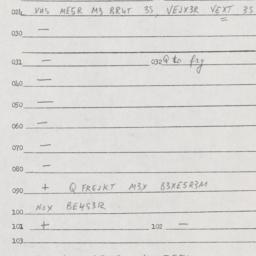 021 VHS MESR M3 BR4T 3S, VEJX3R VEXT 3S
030 —
031 — 032 Q to frg
040 —
050 —
060 —
070 —
080 —
090 + Q FREJKT M3X B3XESR3M
100 NOX BE4S3R
101 + 102 —
103